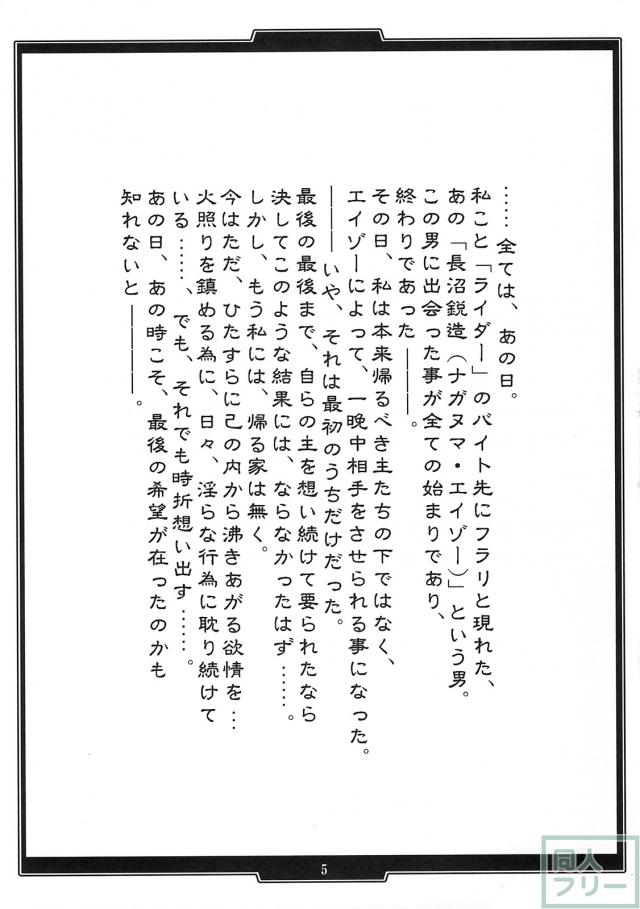 ……全ては、あの日。
私こと「ライダー」のバイト先にフラリと現れた、
あの「長沼鋭造（ナガヌマ・エイゾー）」という男。
この男に出会った事が全ての始まりであり、
終わりであった―――。
その日、私は本来帰るべき主たちの下ではなく、
エイゾーによって、一晩中相手をさせられる事になった。
―――いや、それは最初のうちだけだった。
最後の最後まで、自らの主を想い続けて要られたなら
決してこのような結果には、ならなかったはず……。
しかし、もう私には、帰る家は無く。
今はただ、ひたすらに己の内から沸きあがる欲情を…
火照りを鎮める為に、日々、淫らな行為に耽り続けて
いる……、でも、それでも時折想い出す……。
あの日、あの時こそ、最後の希望が在ったのかも
知れないと――――。
5
同人
フリー